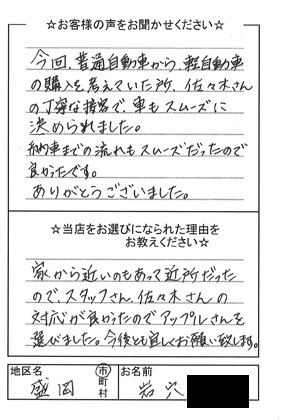 ☆お客様の声をお聞かせください☆
今回、普通自動車から、軽自動車
の購入を考えていた所、佐々木さん
の丁寧な接客で、車もスムーズに
決められました。
納車までの流れもスムーズだったので
良かったです。
ありがとうございました。
☆当店をお選びになられた理由を
お教えください☆
家から近いのもあって近所だった
ので、スタッフさん、佐々木さんの
対応が良かったのでアップルさんを
選びました。今後とも宜しくお願い致します。
地区名 盛岡 市町村 お名前 岩穴